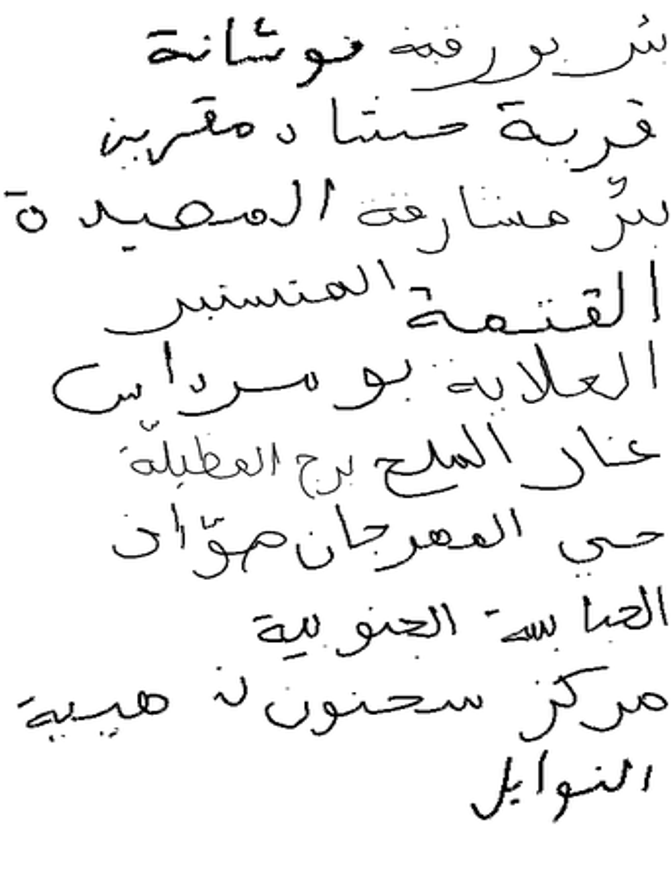 بئر بورقبة نوشانة
قرية حشاد مقرين
بئر مشارقة المصيدة
القتمة المتسنبر
العلاية بومرداس
غنار الملح برج الطيلة
حي المهرجان صوّان
العباسة الجنوبية
مركز سحنون ذهيبة
النوايل